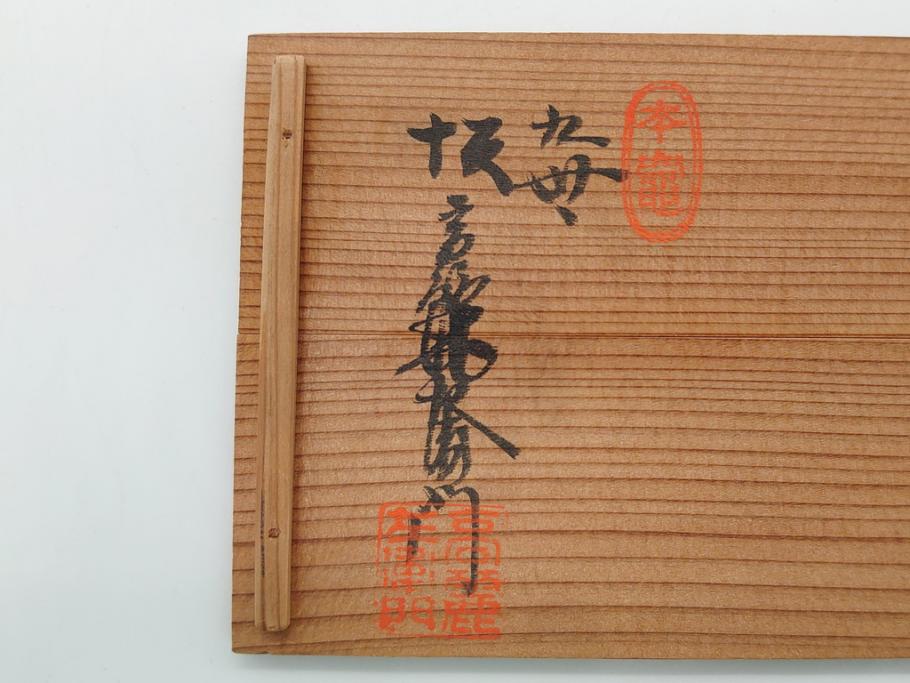 本竈
九世
坂高麗左衛門
高麗
左衛門